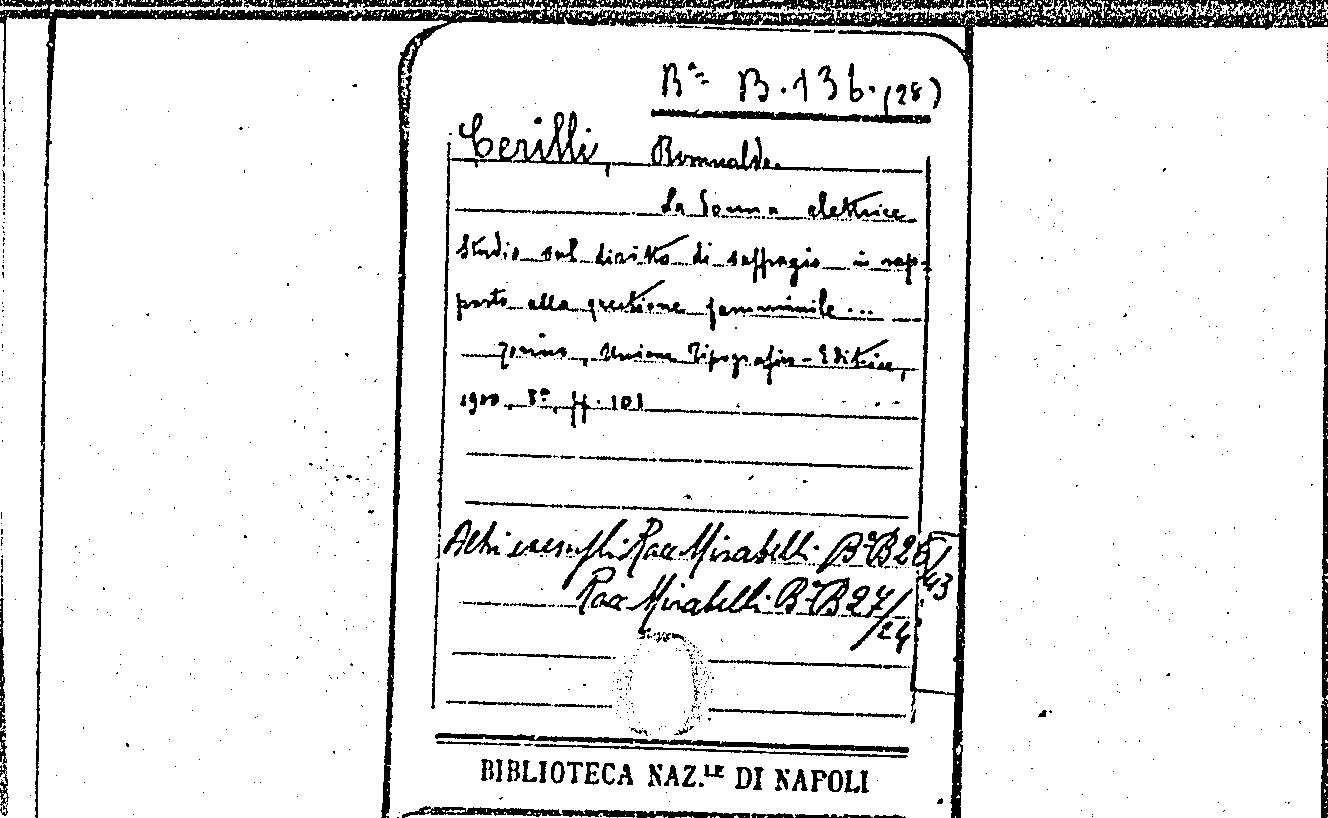 Bª B. 136. (28)
Cerilli, Romualdo.
La donna elettrice
Studio sul diritto di suffragio in rap-
porto alla questione femminile ...
Torino, Unione Tipografico-Editrice,
1900, 8º, pp. 101
Altri esempl: Racc Mirabelli. Bª B 26/43
Racc Mirabelli Bª B 27/24
BIBLIOTECA NAZ.LE DI NAPOLI